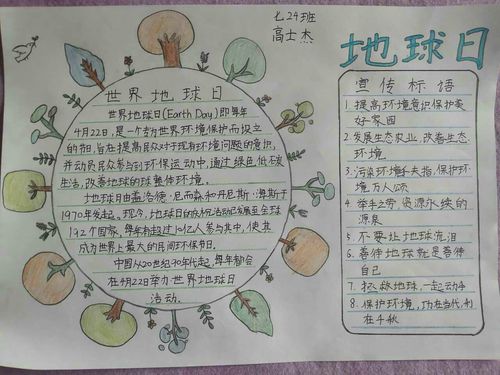 七24班
高士杰
地球日
世界地球日
世界地球日(Earth Day)即每年
4月22日,是一个专为世界环境保护而设立
的节日,旨在提高民众对于现有环境问题的意识,
并动员民众参与到环保运动中,通过绿色低碳
生活,改善地球的整体环境。
地球日由盖洛德·尼而森和丹尼斯·海斯于
1970年发起。现今,地球日的庆祝活动已发展至全球
192个国家,每年有超过10亿人参与其中,使其
成为世界上最大的民间环保节日。
中国从20世纪90年代起,每年都会
在4月22日举办世界地球日
活动.
宣传标语
1 提高环境意识保护美
好家园
2.发展生态农业,改善生态
环境
3.污染环境千夫指,保护环
境万人颂
4. 举手之劳 资源永续的
源泉
5. 不要让地球流泪
6. 善待地球就是善待
自己
7. 拯救地球,一起动手
8. 保护环境,功在当代,利
在千秋